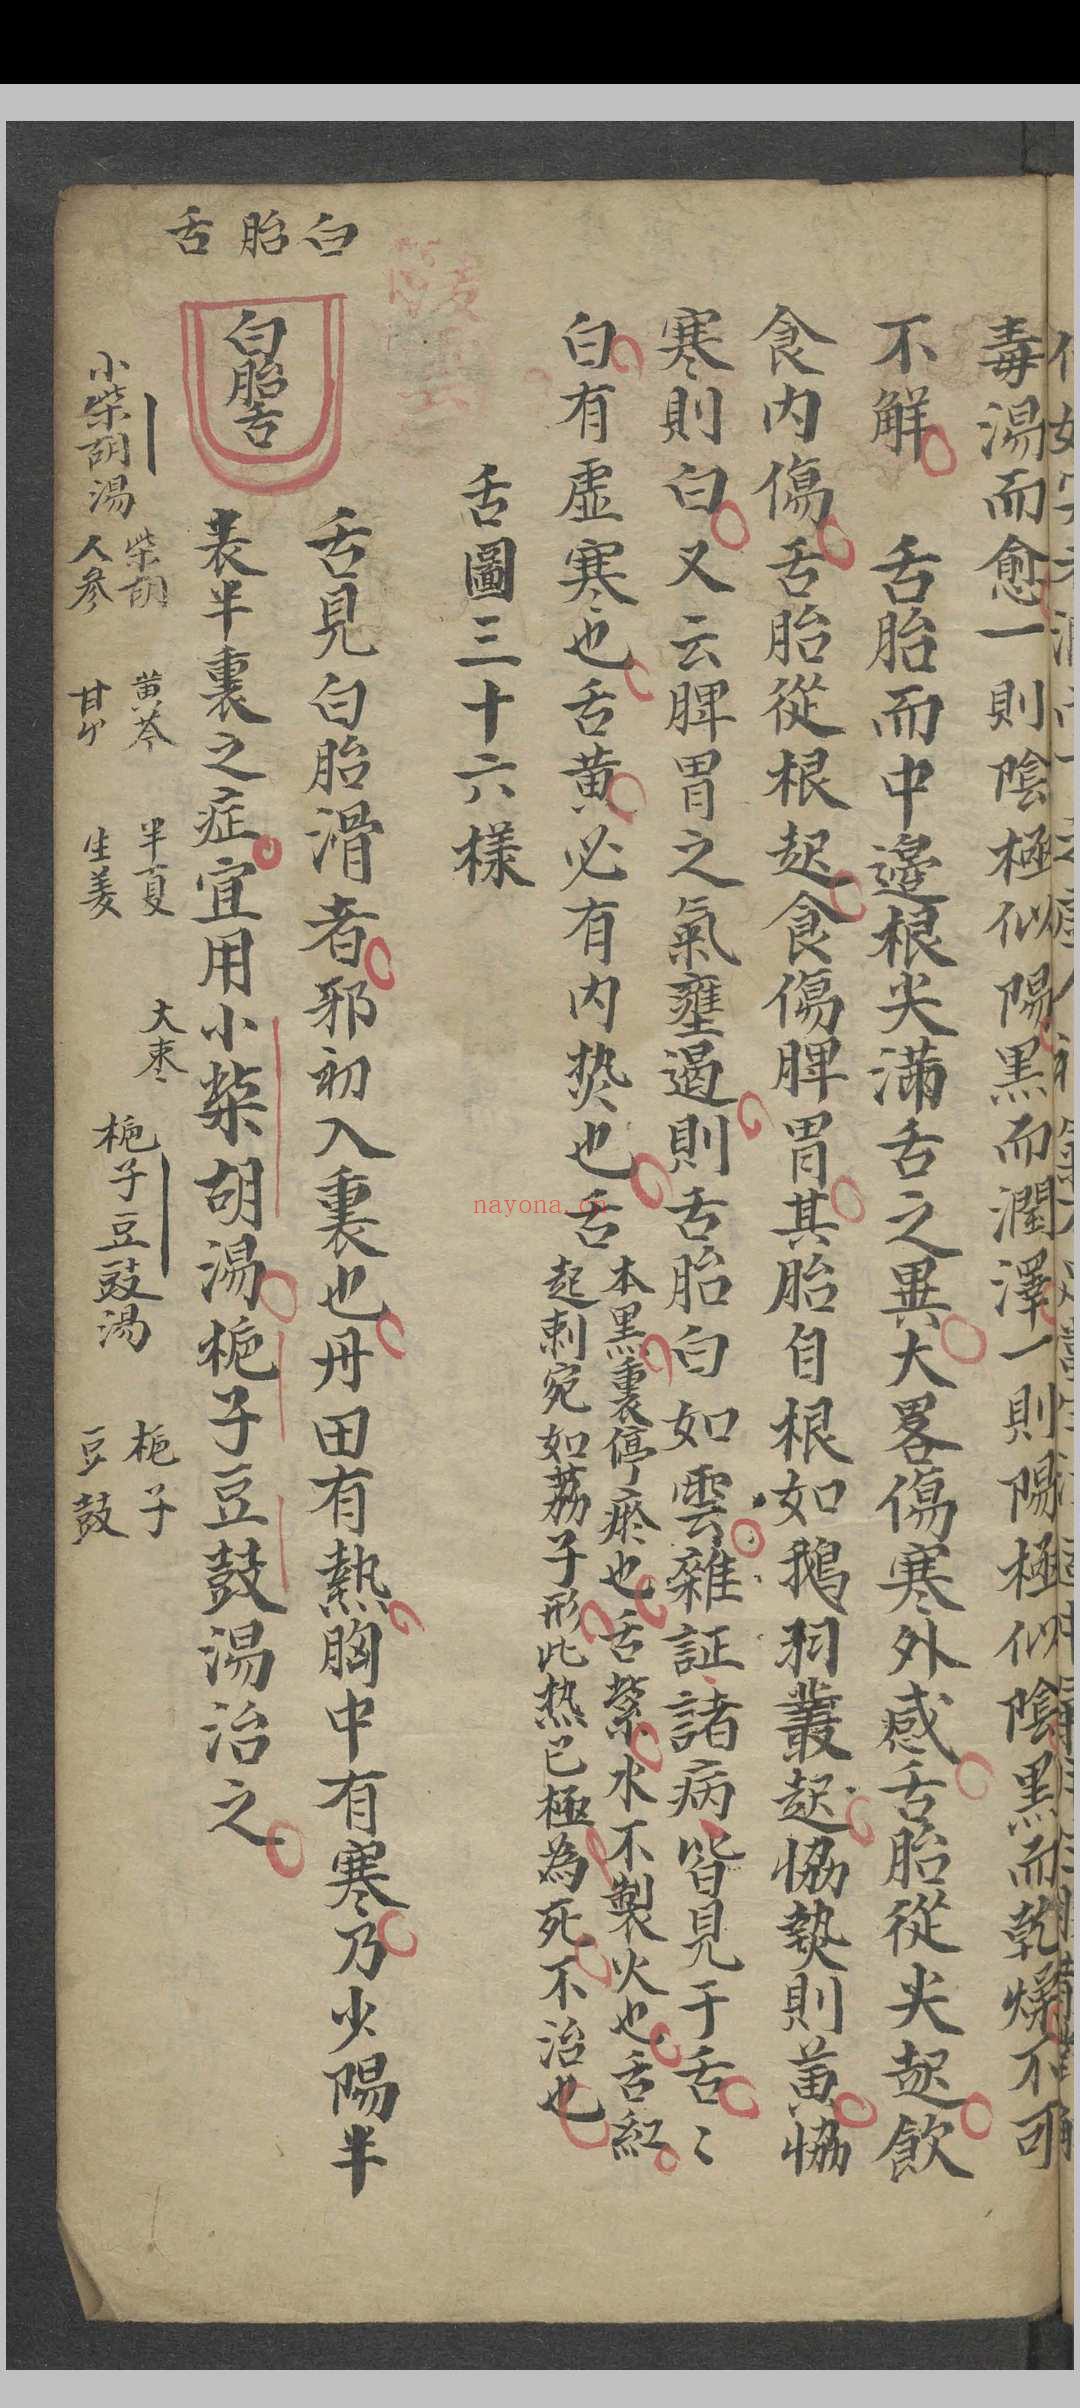 毒湯而愈一則陰極似陽黑而潤澤一則陽極似陰黑而乾燥不可
不觧　舌胎而中邉根尖滿舌之異大畧傷寒外感舌胎從尖起飲
食内傷舌胎從根起食傷脾胃其胎自根如鵝羽叢起恊𤍠則黄恊
寒則白又云脾胃之氣壅遏則舌胎白如雲雜証諸病皆見于舌〻
白有虛寒也舌黄必有内热也舌
本黑裏停瘀也舌紫水不製火也舌紅
起刺宛如荔子形此热已極為死不治也
舌圖三十六樣
白胎舌
白胎舌
舌見白胎滑者邪初入裏也丹田有熱胸中有寒乃少陽半
表半裏之症宜用小柴胡湯梔子豆鼓湯治之
小柴胡湯
柴胡　黄芩　半夏　大枣
人參　甘　生姜
梔子豆豉湯
梔子
豆鼓
nayona.cn